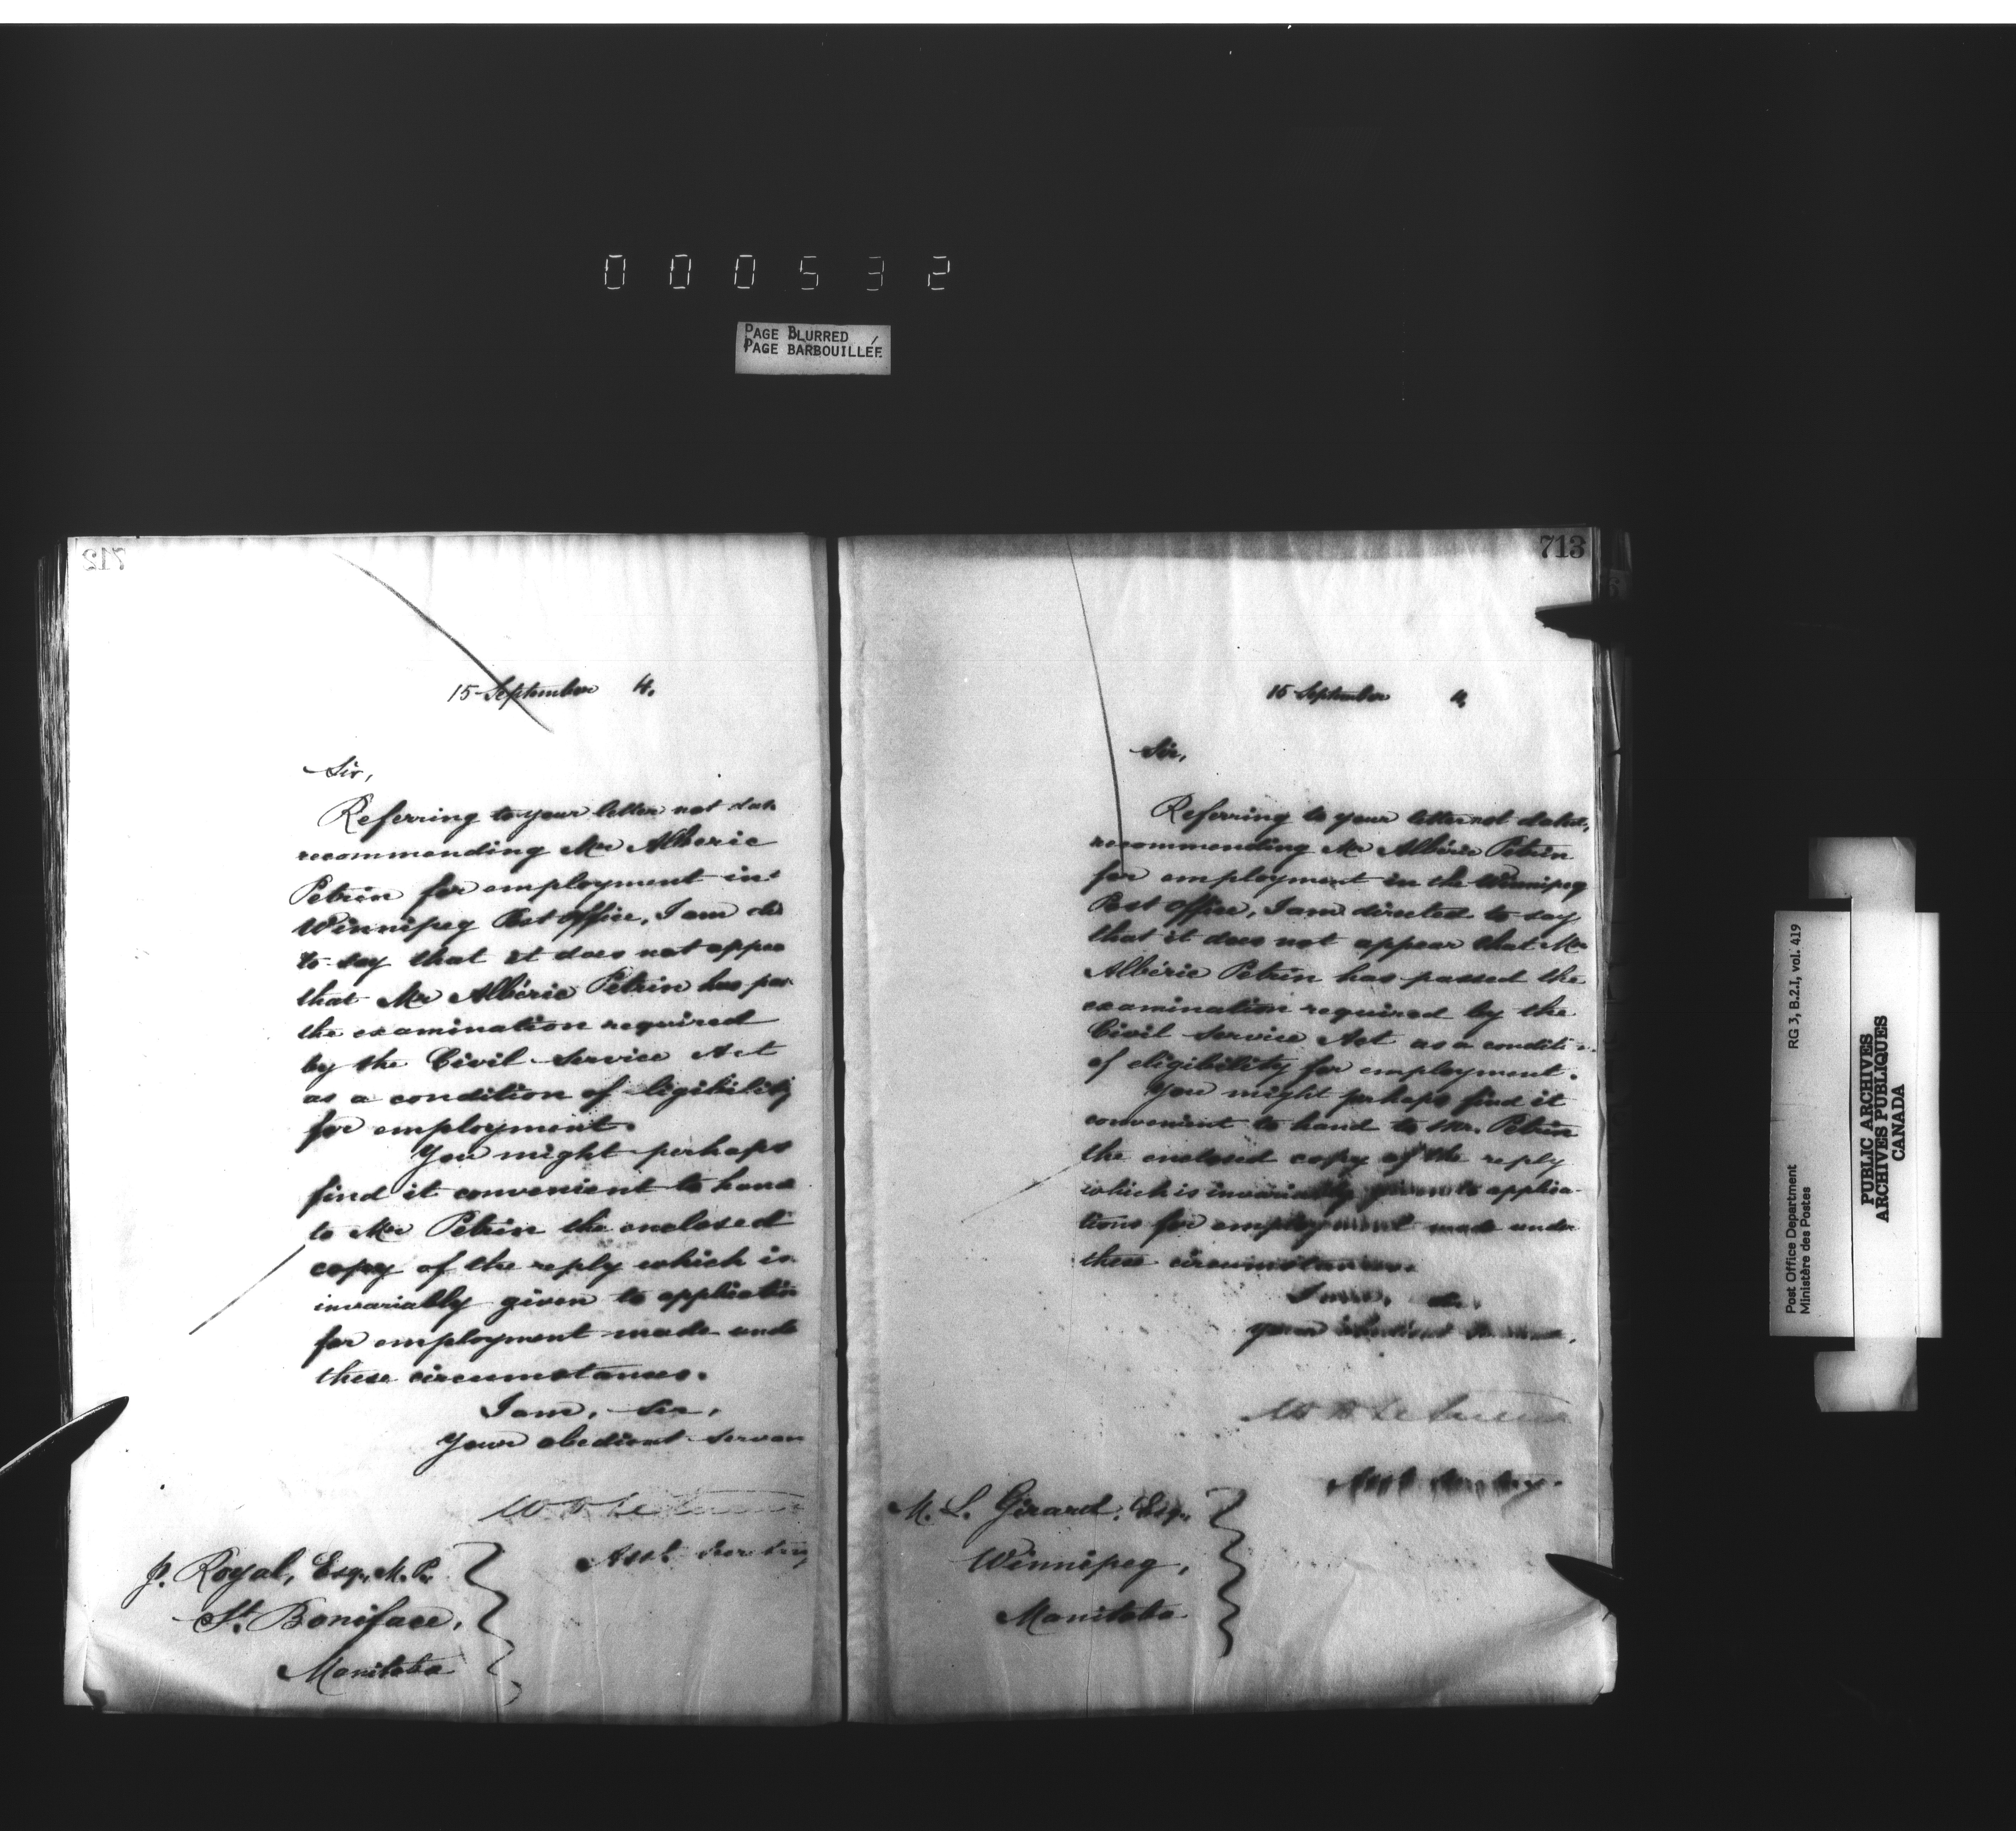 000532
PAGE BLURRED
PAGE BARBOUILLÉE
712
15 September 4.
Sir,
Referring to your letter not dat
recommending Mr Alberic
Petrin for employment in
Winnipeg Post Office, I am di
to say that it does not appea
that Mr Albéric Petrin has pas
the examination required
by the Civil Service Act
as a condition of eligibility
for employment.
You might perhaps
find it convenient to hand
to Mr Petrin the enclosed
copy of the reply which is
invariably given to applicatio
for employment made unde
these circumstances.
I am, Sir,
Your obedient servan
J. Royal, Esq., M.P.
St. Boniface,
Manitoba
713
15 September 4.
Sir,
Referring to your letter not dated,
recommending Mr Albéric Petrin
for employment in the Winnipeg
Post Office, I am directed to say
that it does not appear that Mr
Albéric Petrin has passed the
examination required by the
Civil Service Act as a conditi
of eligibility for employment.
You might perhaps find it
convenient to hand to Mr. Petrin
the enclosed copy of the reply
which is invariably given to applica-
tions for employment made under
these circumstances.
I am,
your obedient
M. L. Girard, Esq.,
Winnipeg,
Manitoba
Post Office Department RG 3, B.2.I, vol. 419
Ministère des Postes
PUBLIC ARCHIVES
ARCHIVES PUBLIQUES
CANADA